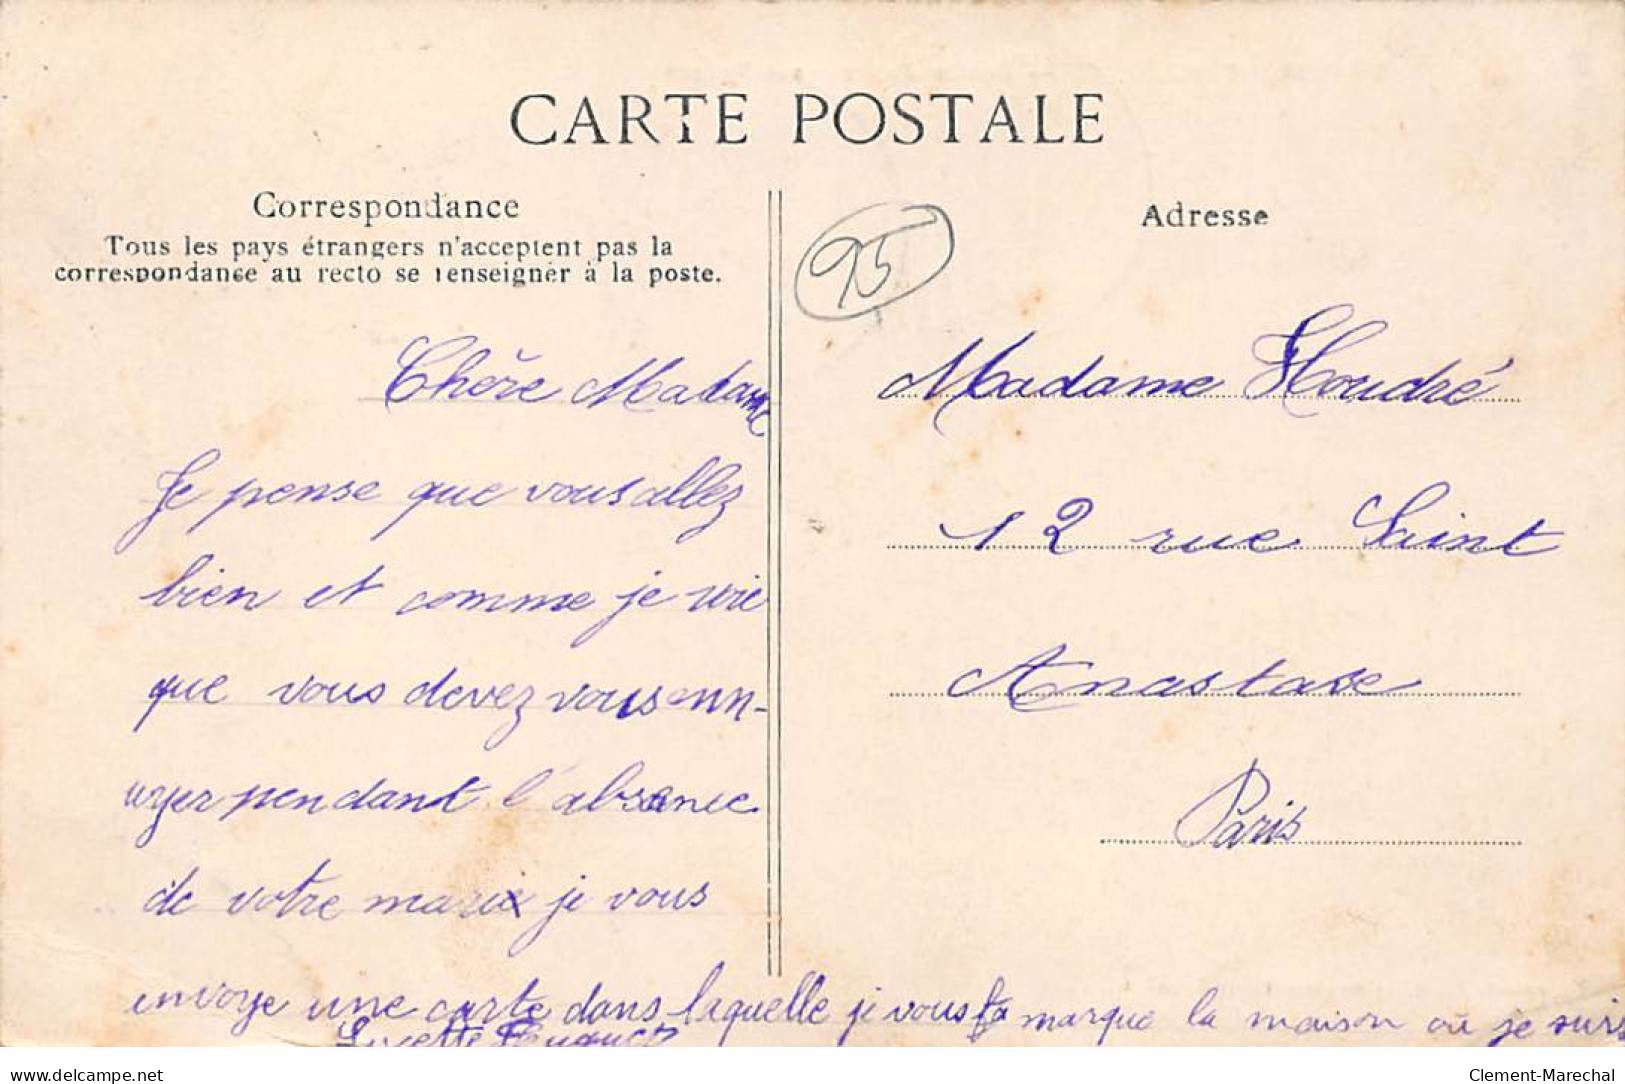 CARTE POSTALE
Correspondance
Tous les pays étrangers n'acceptent pas la
correspondance au recto se renseigner à la poste.
Chère Madame
Je pense que vous allez
bien et comme je
que vous devez vous enn-
uyer pendant l'absence
de votre marie je vous
envoye une carte dans laquelle je vous marque la maison où je suis
Lucette
95
Adresse
Madame Houdré
12 rue Saint
Anastase
Paris
delcampe.net
Clement-Marechal